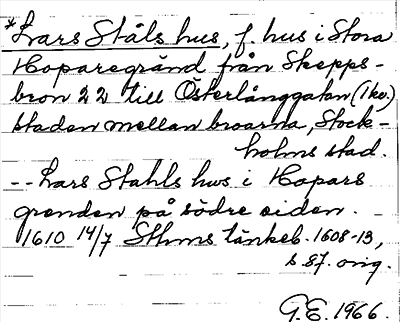 *Lars Ståls hus, f. hus i Stora
Hoparegränd från Skepps-
bron 22 till Österlånggatan (1 kv.)
staden mellan broarna, Stock-
holms stad.
-- Lars Stahls hws i Hopars
grenden på södre siden. -
1610 14/7 Sthms tänkeb. 1608-13,
s 87. orig.
G.E. 1966.